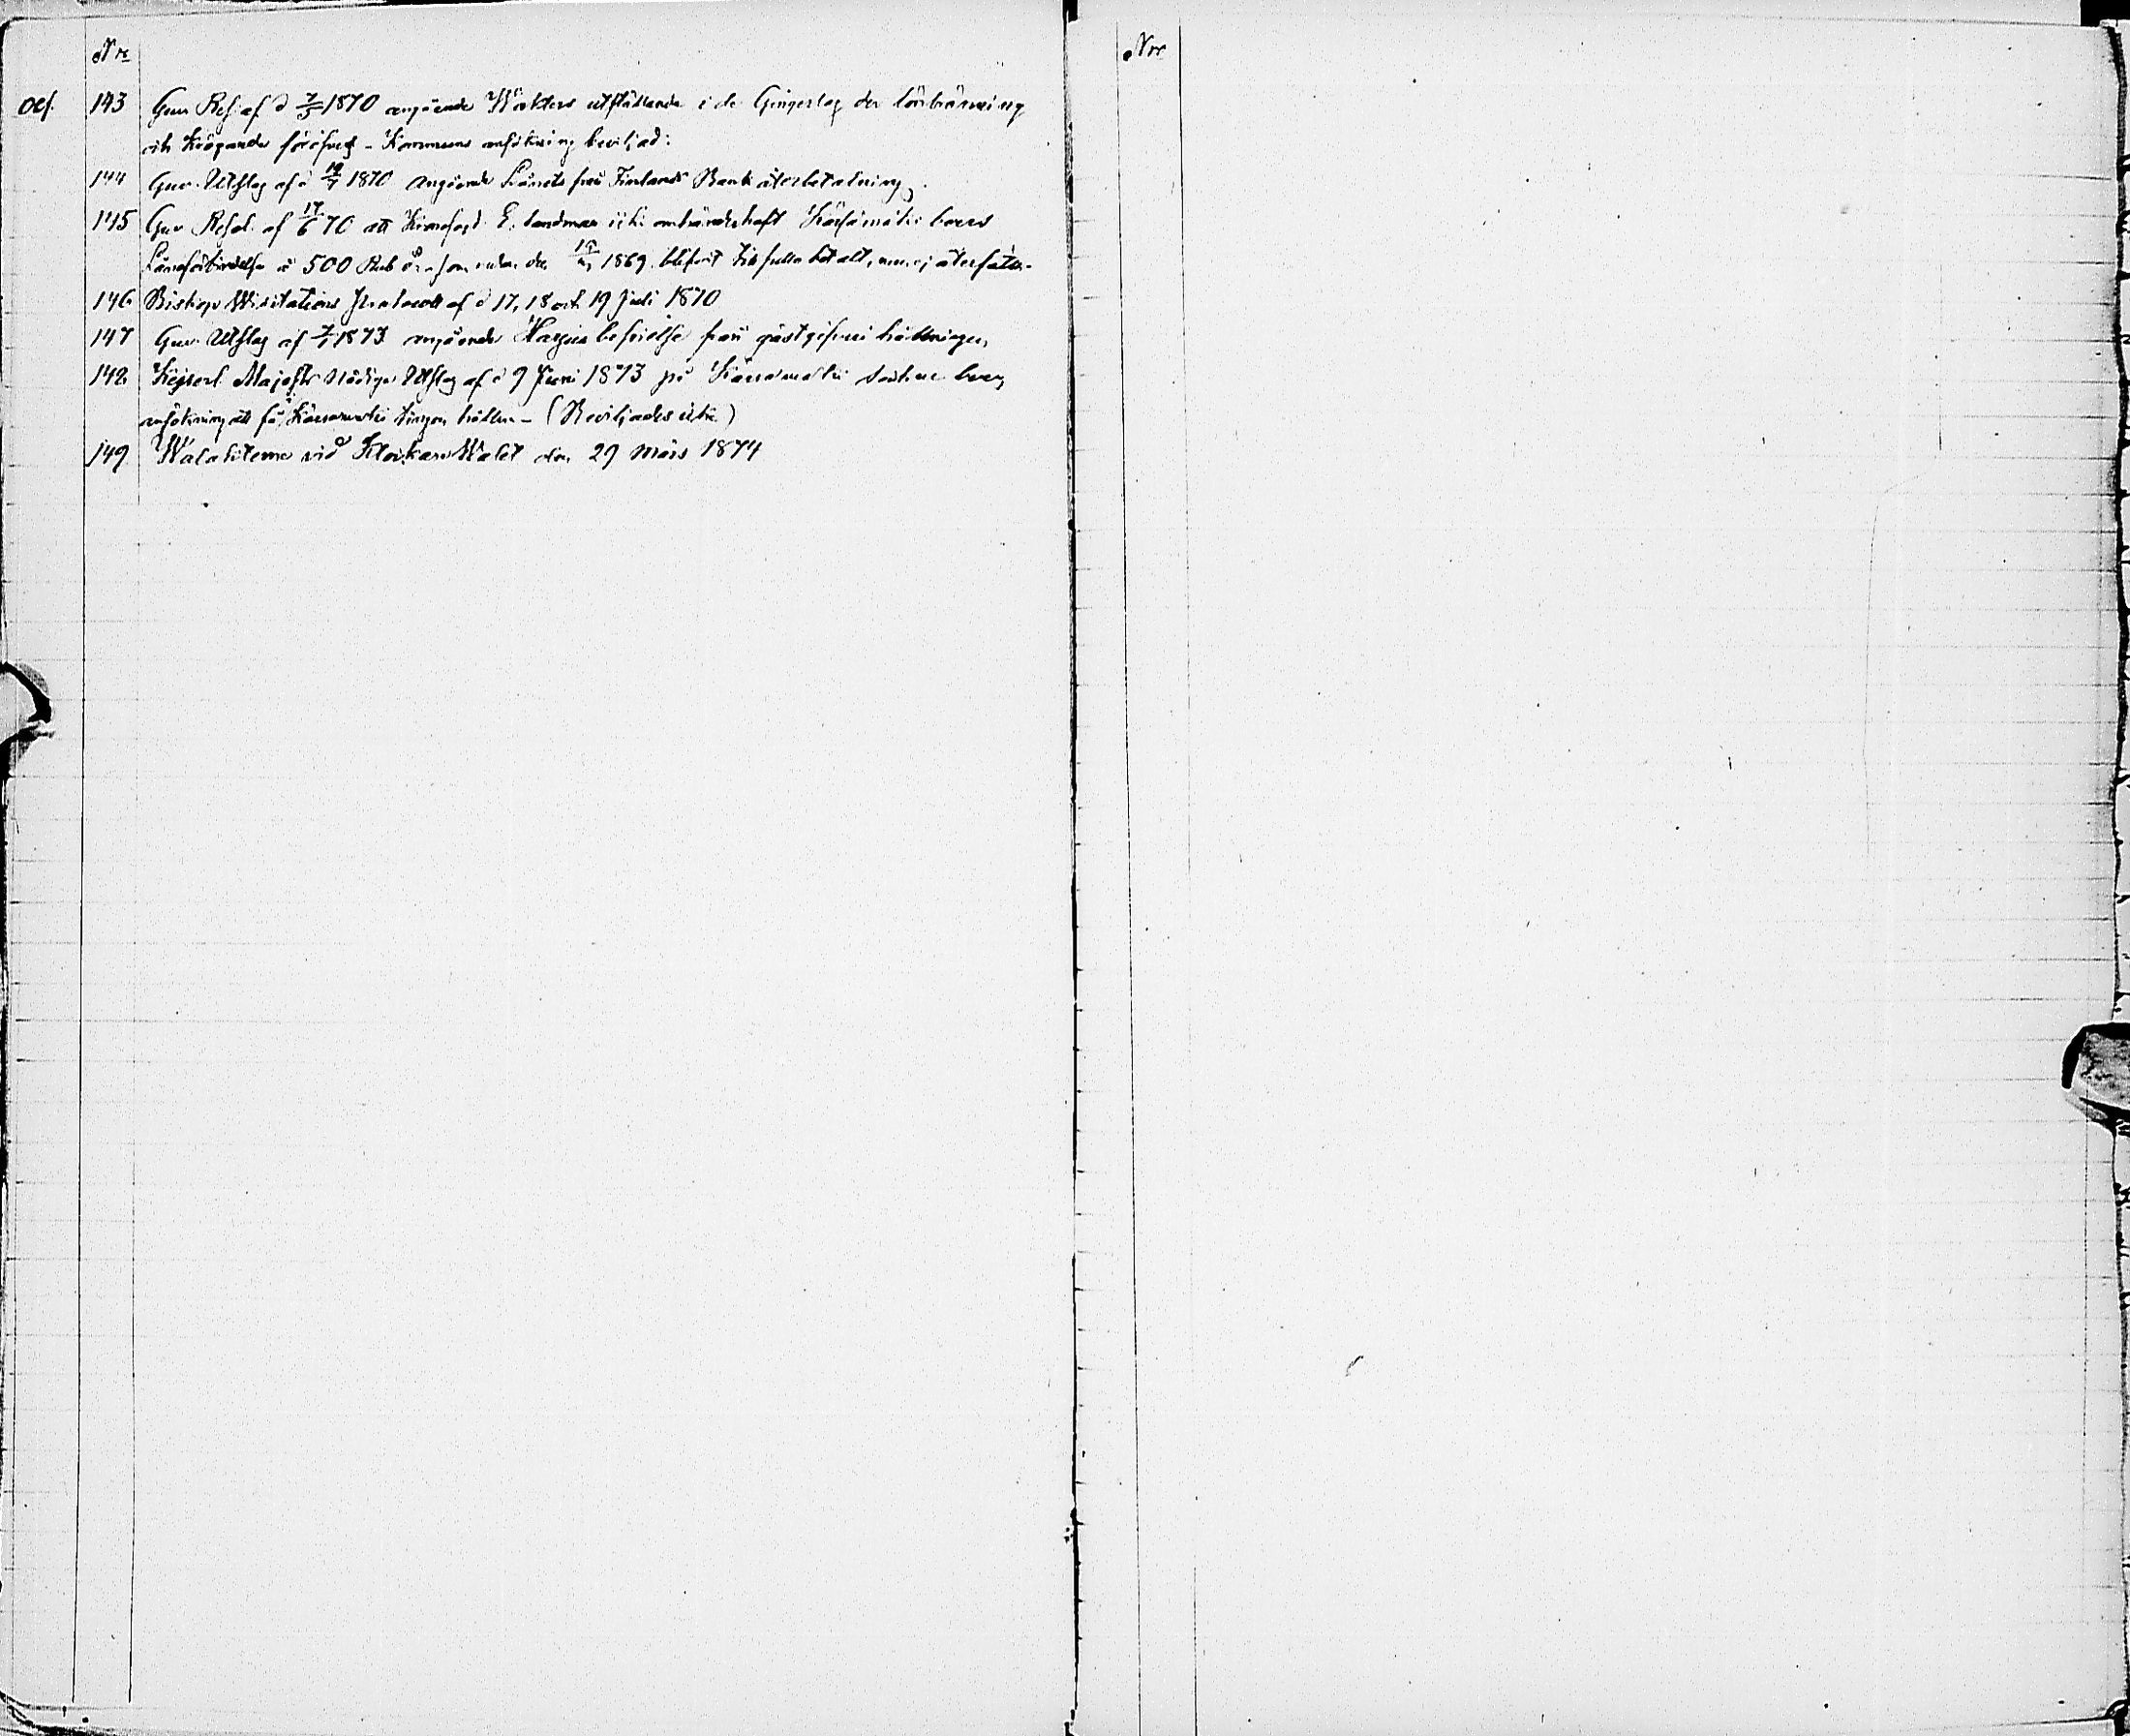 Nro
Ocf. 143 Guv. Resl. af d 7/5 1870 angående Wakters utställande i de Gingerlag der lönbränning
och Krögande föröfvas - Kommuns ansökning beviljad:
144 Guv. Utslag af d 19/7 1870 angående Lånets från Finlands Bank återbetalning.
145 Guv Resol. af 17/6 70 att Kronofogd. E. Sandman icke omhänderhaft Kärsämäki boers
Låneförbindelse å 500 Rub som redan den 1869 blifvit till fullo betalt, men ej återfåtts.
146 Biskops Wisitations Protocoll af d 17, 18 och 19 Juli 1870
147 Guv. Utslag af 1873 angående Karjus befrielse från gästgifveri hållningen
148 Kejserl. Majestts Nådiga Utslag af d 9 Juni 1873 på Kärsämäki sockne boers
ansökning att få i Kärsämäki tingen hållne - (Beviljades icke)
149 Walakterne vid Klockare Walet den 29 Mars 1874
Nro